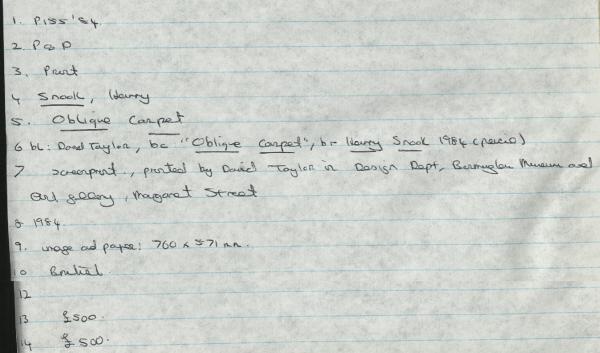 1. P155'84.
2 P & D
3. Print
4 Snook, Harry
5. Oblique Carpet
6 bl: David Taylor, bc "Oblique Carpet", br Harry Snook 1984 (pencil)
7 screenprint, printed by David Taylor in Design Dept, Birmingham Museum and
Art gallery, Margaret Street
8 1984.
9. image and paper: 760 x 571 mm.
10
12
13 £500.
14 £500.